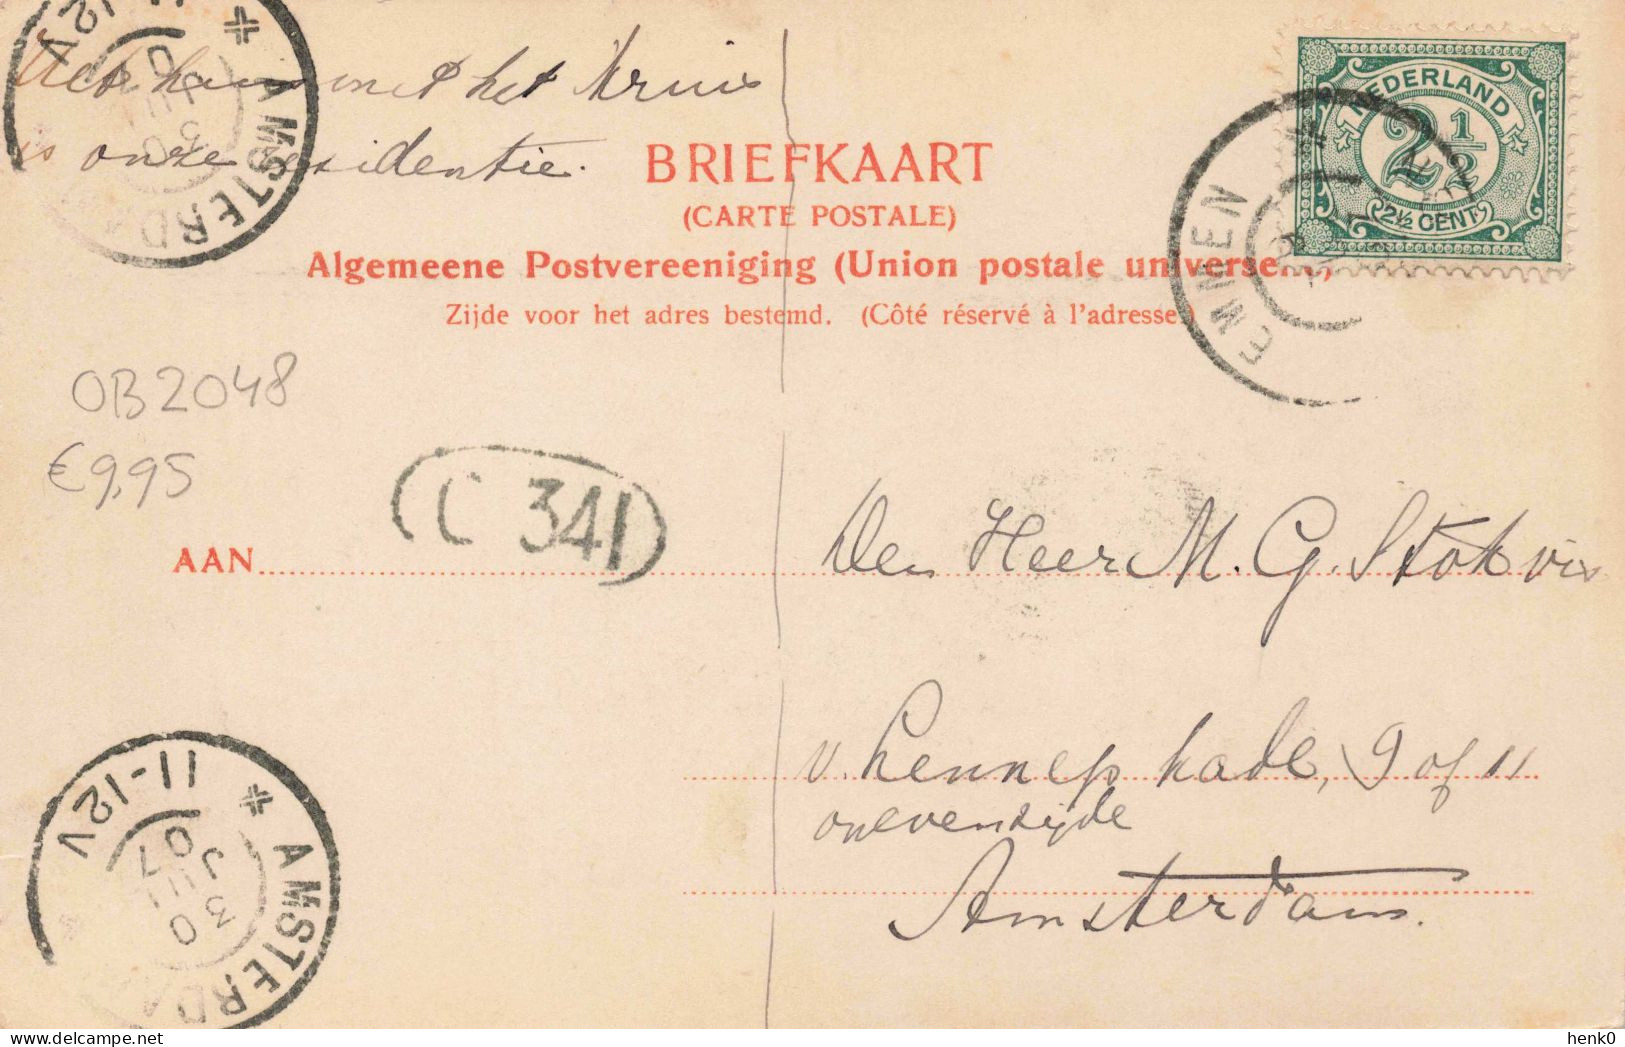 Het huis met het kruis
is onze residentie.
BRIEFKAART
(CARTE POSTALE)
Algemeene Postvereeniging (Union postale universelle)
Zijde voor het adres bestemd. (Côté réservé à l'adresse.)
NEDERLAND
2½
2½ CENT
EMMEN
AMSTERDA
11-12V
30
JUL
07
OB2048
€9,95
C 341
AAN
Den Heer M. G. Stokvis
v. Lennep kade, 9 of 11
onevenzijde
Amsterdam.
AMSTERDA
11-12V
30
JUL
07
henk0